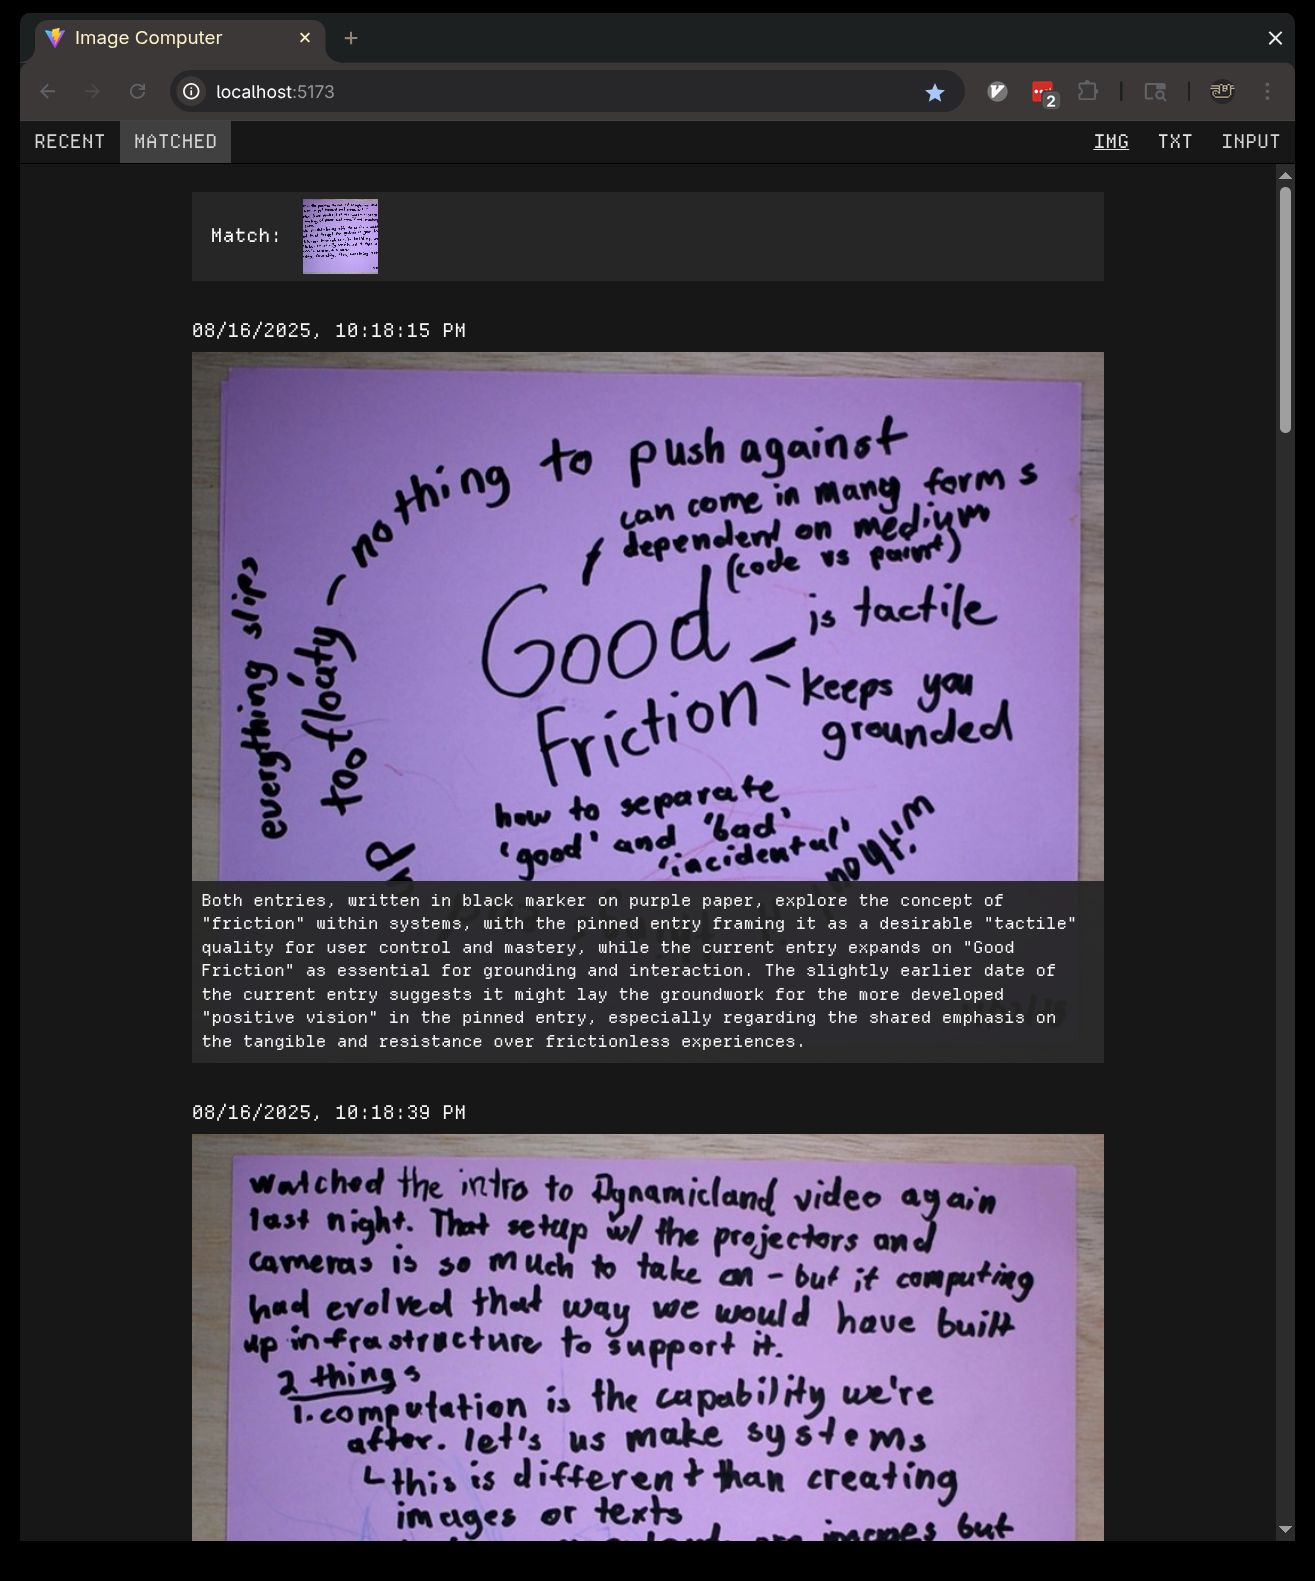 Image Computer
localhost:5173
2
RECENT
MATCHED
IMG
TXT
INPUT
Match:
08/16/2025, 10:18:15 PM
nothing to push against
can come in many forms
dependent on medium
(code vs paint)
Good
Friction
is tactile
keeps you
grounded
everything slips
too floaty
how to separate
'good' and 'bad'
'incidental'
Both entries, written in black marker on purple paper, explore the concept of
"friction" within systems, with the pinned entry framing it as a desirable "tactile"
quality for user control and mastery, while the current entry expands on "Good
Friction" as essential for grounding and interaction. The slightly earlier date of
the current entry suggests it might lay the groundwork for the more developed
"positive vision" in the pinned entry, especially regarding the shared emphasis on
the tangible and resistance over frictionless experiences.
08/16/2025, 10:18:39 PM
watched the intro to Dynamicland video again
last night. That setup w/ the projectors and
cameras is so much to take on - but if computing
had evolved that way we would have built
up infrastructure to support it.
2 things
1. computation is the capability we're
after. let's us make systems
this is different than creating
images or texts
images but